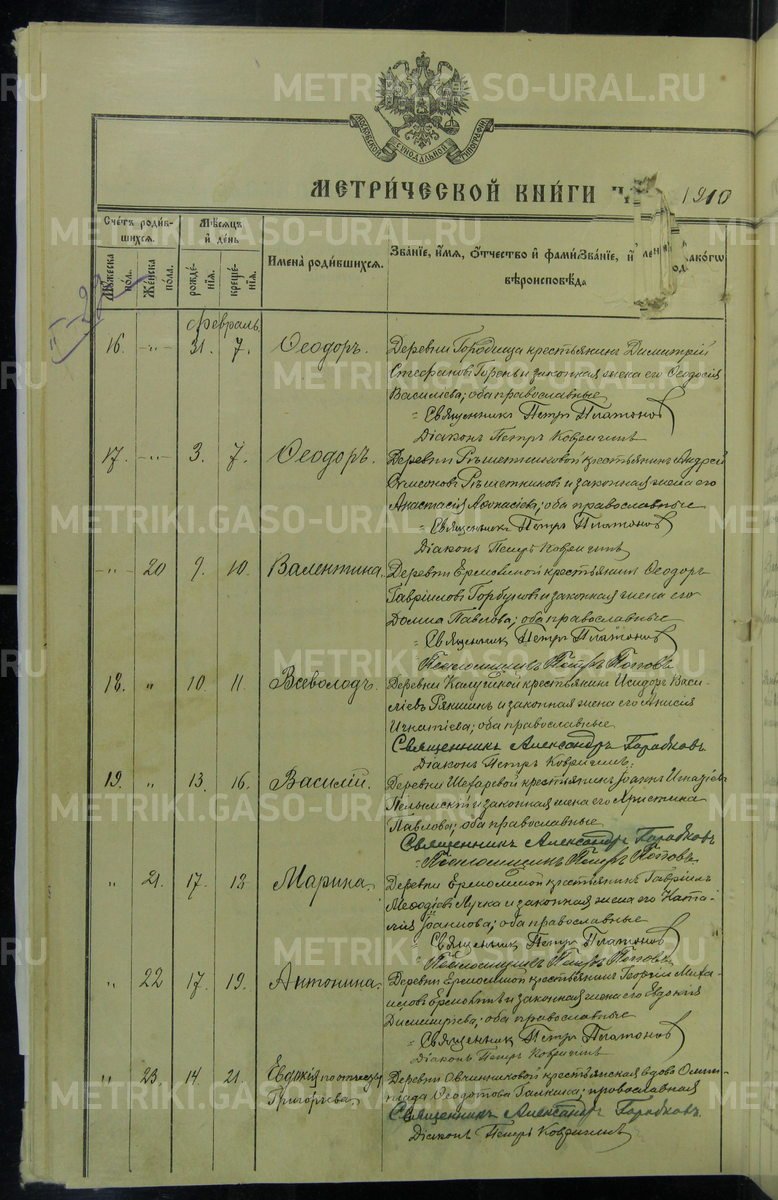 METRIKI.GASO-URAL.RU
МОСКОВСКОЙ СѴНОДАЛЬНОЙ ТИПОГРАФІИ
МЕТРИ́ЧЕСКОЙ КНИ́ГИ 1910
Сче́тъ роди́в-
шихся.
Мѹ́жеска по́ла.
Же́нска по́ла.
Мѣ́сяцъ
и҆ де́нь
рожде́нїя.
креще́нїя.
И҆мена̀ роди́вшихся.
Зва́нїе, и҆́мя, ѻ҆́тчество и҆ фами́
Зва́нїе, и҆
како́гѡ
вѣроисповѣ́да
Февраль
16. -"- 31. 7. Ѳеодоръ. Деревни Городища крестьянинъ Димитрій
Стефановъ Горень и законная жена его Ѳеодосія
Василиева; оба православные
Священникъ Петръ Платоновъ
Діаконъ Петръ Ковригинъ
17. -"- 3. 7. Ѳеодоръ. Деревни Рѣшетниковой крестьянинъ Андрей
Рѣшетниковъ и законная жена его
Анастасія Аѳонасіева; оба православные
Священникъ Петръ Платоновъ
Діаконъ Петръ Ковригинъ
-"- 20 9. 10. Валентина. Деревни Ермолиной крестьянинъ Ѳеодоръ
Гавріиловъ Горбуновъ и законная жена его
Домна Павлова; оба православные
Священникъ Петръ Платоновъ
Псаломщикъ Петръ Поповъ
18. " 10. 11. Всеволодъ. Деревни крестьянинъ Исидоръ Васи-
ліевъ Рякшинъ и законная жена его Анисія
Игнатіева; оба православные
Священникъ Александръ
Діаконъ Петръ Ковригинъ.
19. " 13. 16. Василій. Деревни Шехаревой крестьянинъ Іоаннъ Игнатіевъ
Пелымскій и законная жена его Христина
Павлова; оба православные
Священникъ Александръ
Псаломщикъ Петръ Поповъ
" 21. 17. 18. Марина. Деревни Ермолиной крестьянинъ Гавріилъ
Меѳодіевъ Лучка и законная жена его Ната-
лія Іоаннова; оба православные
Священникъ Петръ Платоновъ
Псаломщикъ Петръ Поповъ
" 22 17. 19. Антонина. Деревни Ермолиной крестьянинъ Георгій Миха-
иловъ и законная жена его Евдокія
Димитріева; оба православные
Священникъ Петръ Платоновъ
Діаконъ Петръ Ковригинъ
" 23. 14. 21. Евдокія по отчеству Деревни Овчинниковой крестьянская вдова Олим-
Григорьева. піада Ѳеодотова Галкина; православная
Священникъ Александръ
Діаконъ Петръ Ковригинъ